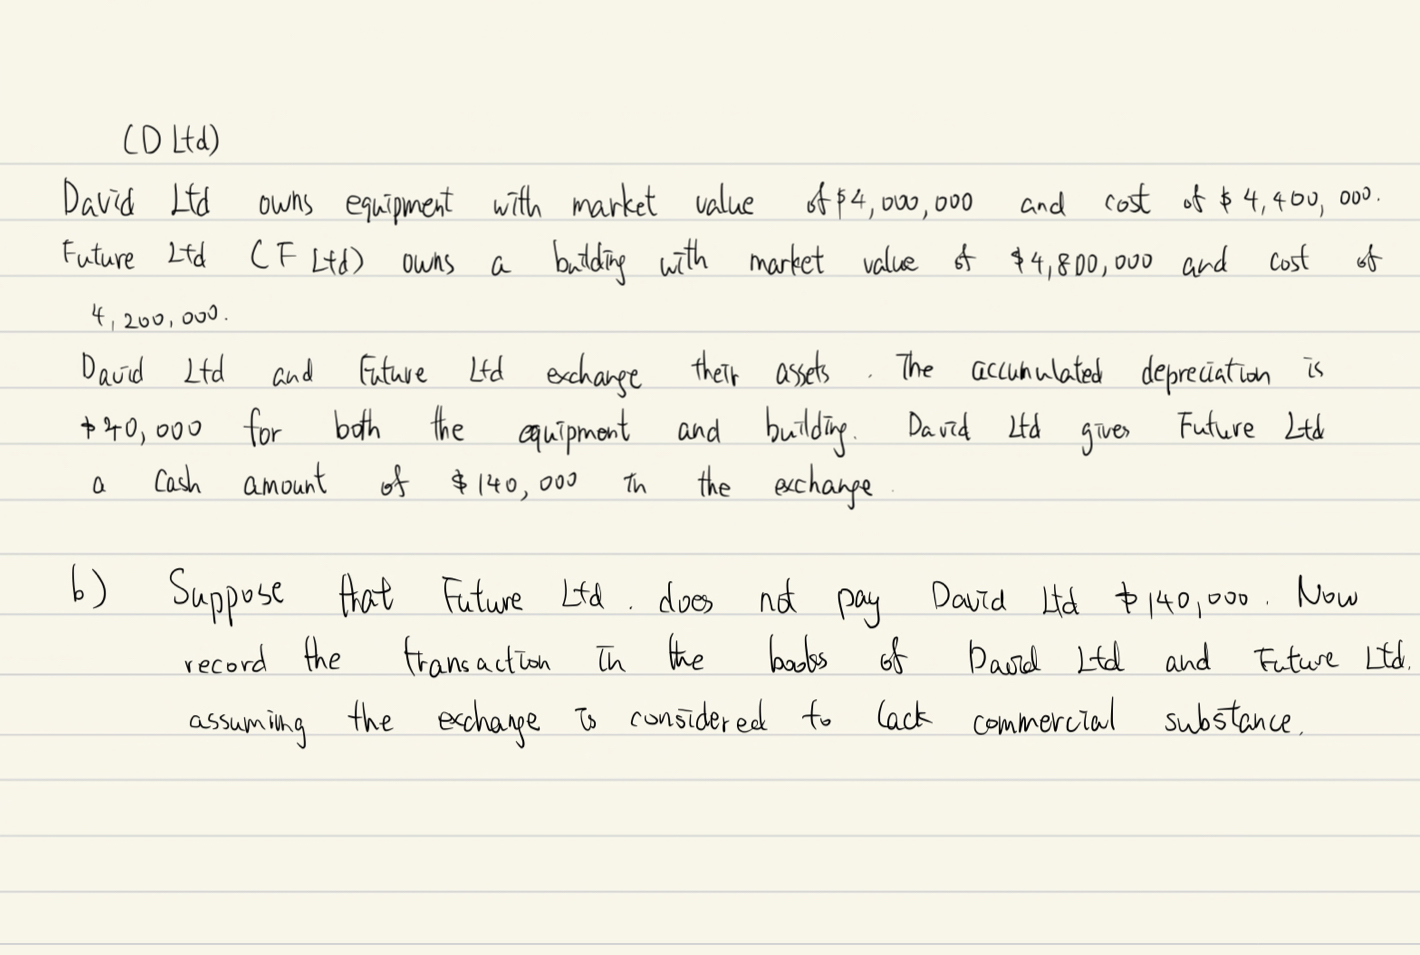 (D Ltd)
David Ltd owns equipment with market value of $4,000,000 and cost of $4,400,000.
Future Ltd (F Ltd) owns a building with market value of $4,800,000 and cost of
4,200,000.
David Ltd and Future Ltd exchange their assets. The accumulated depreciation is
$40,000 for both the equipment and building. David Ltd gives Future Ltd
a cash amount of $140,000 in the exchange.
b) Suppose that Future Ltd. does not pay David Ltd $140,000. Now
record the transaction in the books of David Ltd and Future Ltd.
assuming the exchange is considered to lack commercial substance.